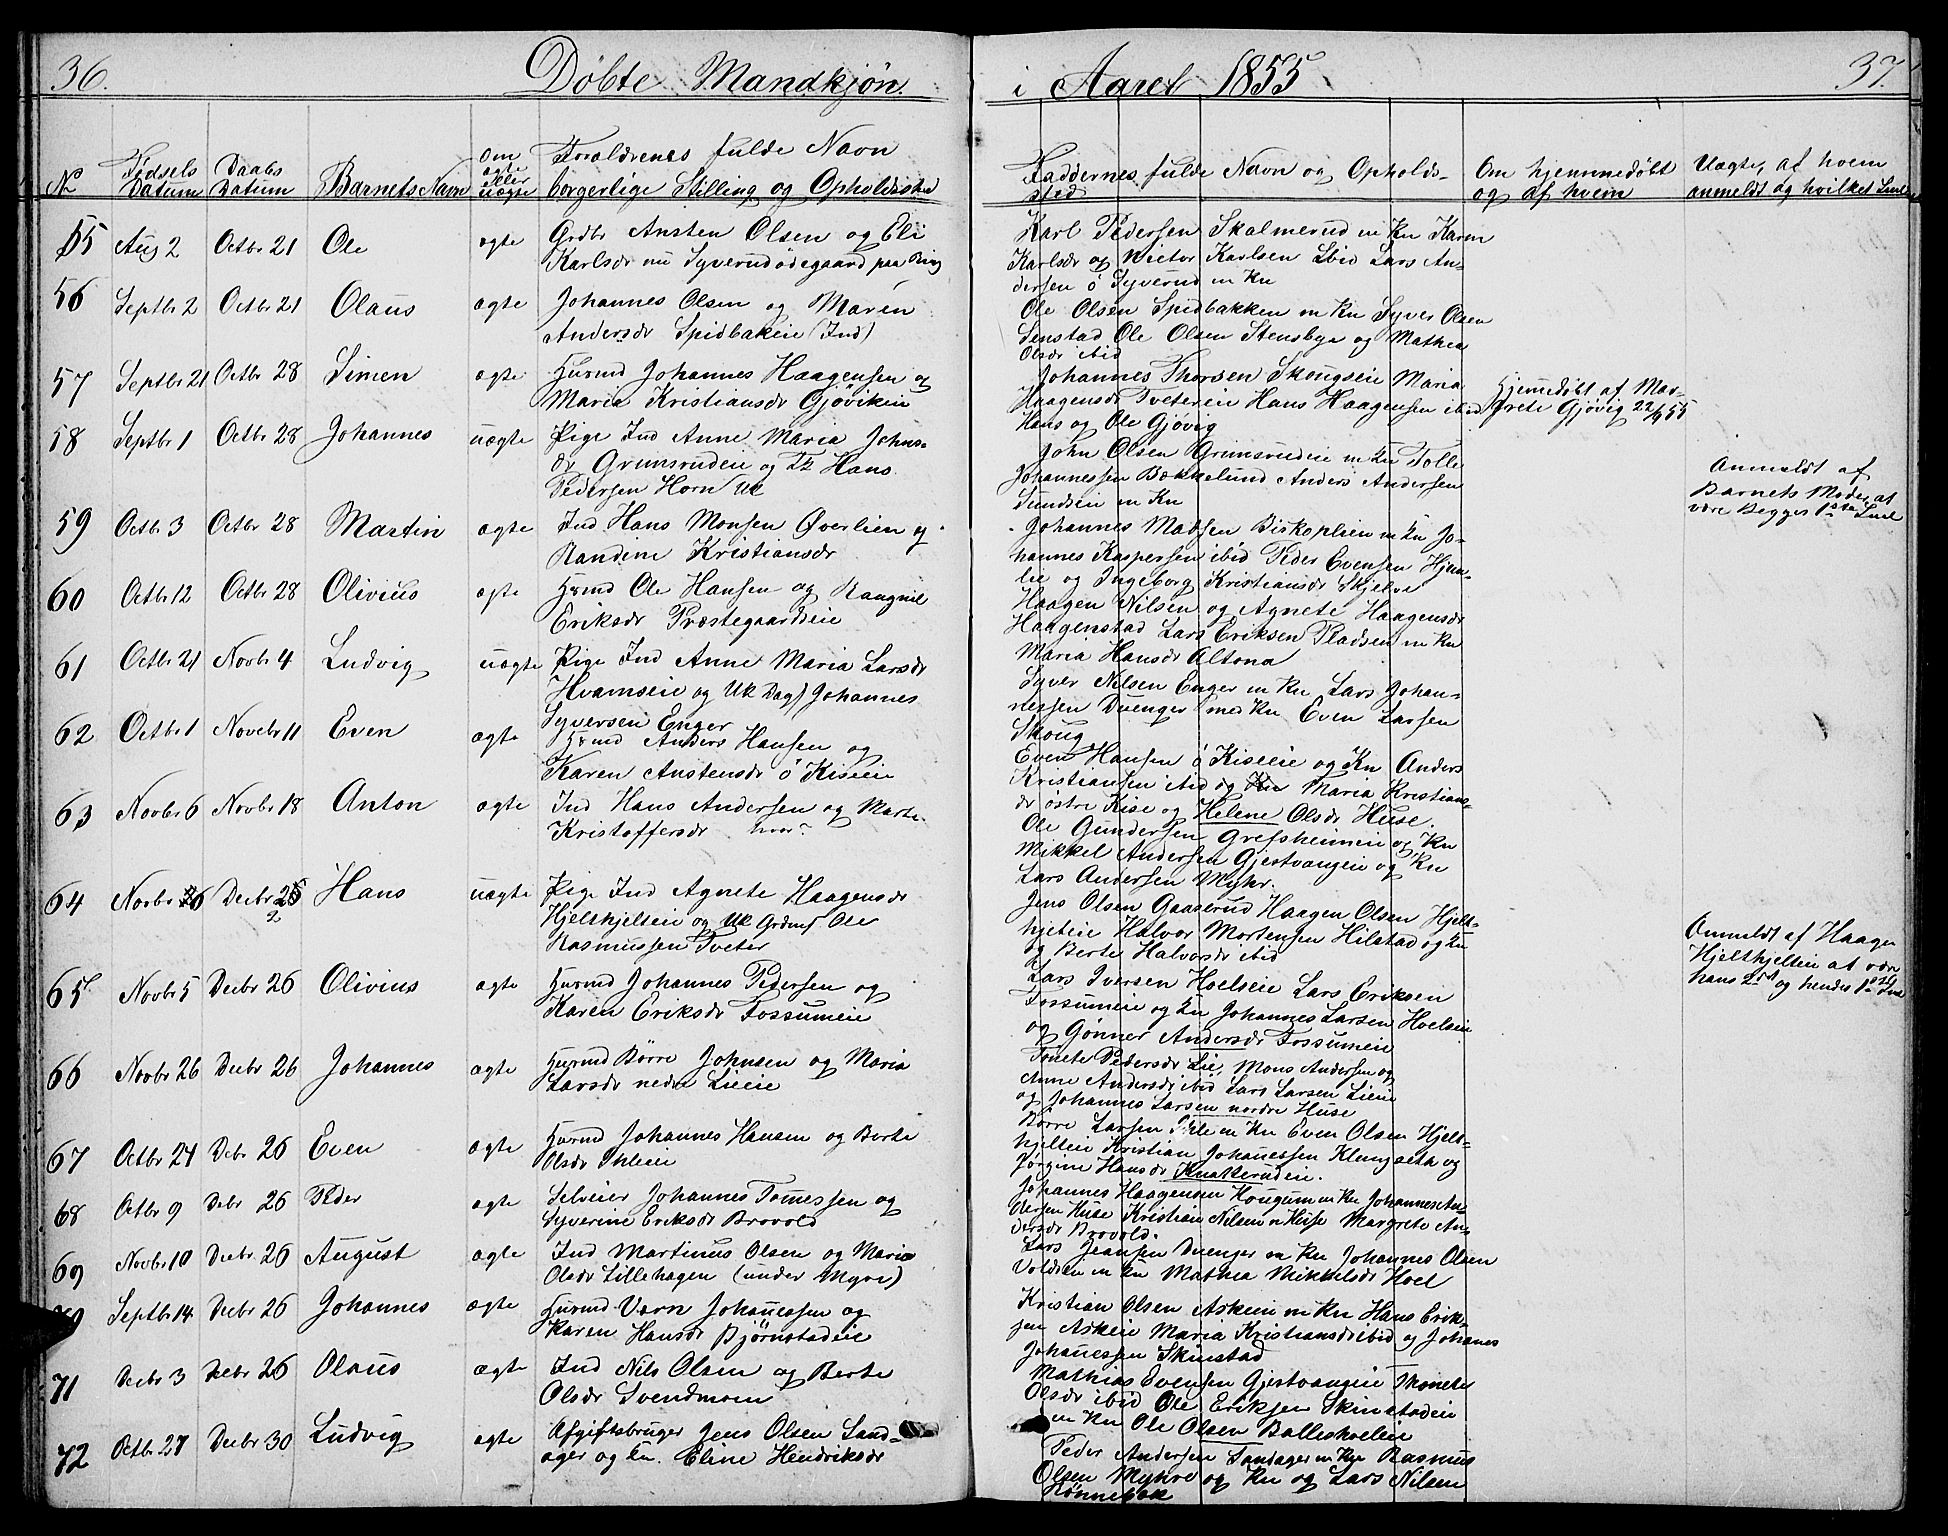 36.
Döbte Mandkjön
No
Födsels Datum
Daabs Datum
Barnets Navn
Om ægte eller uægte
Forældrenes fulde Navn
borgerlige Stilling og Opholdssted
55 Aug 2 Octbr 21 Ole ægte Grdbr Ansten Olsen og Eli
Karlsdr nu Syverudödegaard paa Ring
56 Septbr 2 Octbr 21 Olaus ægte Johannes Olsen og Maren
Andersdr Spidbakeie (Ind)
57 Septbr 21 Octbr 28 Simen ægte Husmd Johannes Haagensen og
Maria Kristiansdr Gjövikeie
58 Septbr 1 Octbr 28 Johannes uægte Pige Ind Anne Maria Johns-
dr Grunsrudeie og Hans
Pedersen Horn Uk
59 Octbr 3 Octbr 28 Martin ægte Ind Hans Monsen Øverlien og
Randine Kristiansdr
60 Octbr 12 Octbr 28 Olivius ægte Husmd Ole Hansen og Raagnil
Eriksdr Præstegaardseie
61 Octbr 21 Novbr 4 Ludvig uægte Pige Ind Anne Maria Larsdr
Hvamseie og Uk Dag) Johannes
Syversen Enger
62 Octbr 1 Novebr 11 Even ægte Husmd Anders Hansen og
Karen Anstensdr ö Kiseeie
63 Novbr 6 Novbr 18 Anton ægte Ind Hans Andersen og Marte
Kristoffersdr hvor?
64 Novbr 6 Decbr 26 Hans uægte Pige Ind Agnete Haagensdr
Hjelthjelteie og Uk Ole
Rasmussen Tveter
65 Novbr 5 Decbr 26 Olivius ægte Husmd Johannes Pedersen og
Karen Eriksdr Fossumeie
66 Novbr 26 Decbr 26 Johannes ægte Husmd Börre Johnsen og Maria
Larsdr nedre Lieeie
67 Octbr 24 Debr 26 Even ægte Husmd Johannes Hansen og Berte
Olsdr Ihleie
68 Octbr 9 Debr 26 Peder ægte Selveier Johannes Tomessen og
Syverine Eriksdr Brovold
69 Novbr 10 Decbr 26 August ægte Ind Martinus Olsen og Maria
Olsdr Lillehagen (under Myre)
Septbr 14 Decbr 26 Johannes ægte Husmd Johannessen og
Karen Hansdr Bjørnstadeie
71 Decbr 3 Decbr 26 Olaus ægte Ind Nils Olsen og Berte
Olsdr Svendmoen
72 Octbr 27 Decbr 30 Ludvig ægte Afgiftsbruger Jens Olsen Sand-
ager og Kn. Eline Hendriksdr
i Aaret 1855
37.
Faddernes fulde Navn og Opholds-
sted
Om hjemmedöbt
og af hvem
Uægte, af hvem
anmeldt og hvilket Leiel
Karl Pedersen Skalmerud m Kn Karen
Karlsdr og Victor Karlsen Ibid Lars An-
dersen ö Syverud m Kn
Ole Olsen Spidbakken m Kn Syver Olsen
Senstad Ole Olsen Stensbye og Mathea
Olsdr ibid
Johannes Thorsen Skougseie Maria
Haagensdr Tvetereie Hans Haagensen ibid
Hans og Ole Gjövig
Hjemedöbt af Mar-
grete Gjövig 22/9 55
John Olsen Grunsrudeie m Kn Tolle
Johannessen Bækkelund Anders Andersen
Sundseie m Kn
Anmeldt af
Barnets Moder at
være Begges 1ste Leiel
Johannes Madsen Biskopleien m Kn Jo-
hannes Kaspersen ibid Peder Evensen Hjem-
lie og Ingeborg Kristiansdr Skjelve
Haagen Nilsen og Agnete Haagensdr
Haagenstad Lars Eriksen Pladsen m Kn
Maria Hansdr Altona
Syver Nilsen Enger m Kn Lars Johan-
nessen Duenger med Kn Even Larsen
Skoug
Even Hansen ö Kiseeie og Kn Anders
Kristiansen ibid og Maria Kristians-
dr östre Kise og Helene Olsdr Huse.
Ole Gundersen Grefsheimeie og Kn
Mikkel Andersen Gjestvangeie og Kn
Lars Andersen Myhr.
Jens Olsen Gaaserud Haagen Olsen Hjelt-
hjelteie Halvor Mortensen Hilstad og Kn
og Berte Halvorsdr ibid
Anmeldt af Haagen
Hjelthjelteie at være
hans 2det og hendes 1ste Leiel
Lars Iversen Hoelseie Lars Eriksen
Fossumeie og Kn Johannes Larsen Hoelseie
og Gönner Andersdr Fossumeie
Tonete Pedersdr Lie, Mons Andersen og
Anne Andersdr ibid Lars Larsen Lieeie
og Johannes Larsen nordre Huse
Börre Larsen Ihle m Kn Even Olsen Hjelt-
hjelteie Kristian Johanessen Klungseth og
Jörgine Hansdr Knatterudeie.
Johannes Haagensen Hougum m Kn Johannes An-
dersen Huse Kristian Nilsen n Huse Margrete An-
dersdr Brovold.
Lars Jensen Duenger m Kn Johannes Olsen
Voldseie m Kn Mathea Mikkelsdr Hoel
Kristian Olsen Askeie m Kn Hans Erik-
sen Askeie Maria Kristiansdr ibid og Johanes
Johanessen Skinstad
Mathias Evensen Gjestvangeie Thonete
Olsdr ibid Ole Eriksen Skinstadeie
m Kn Ole Olsen Balleshoeleie
Peder Andersen Sandager m Kn Rasmus
Olsen Myhre og Kn og Lars Nilsen
Rönnebek